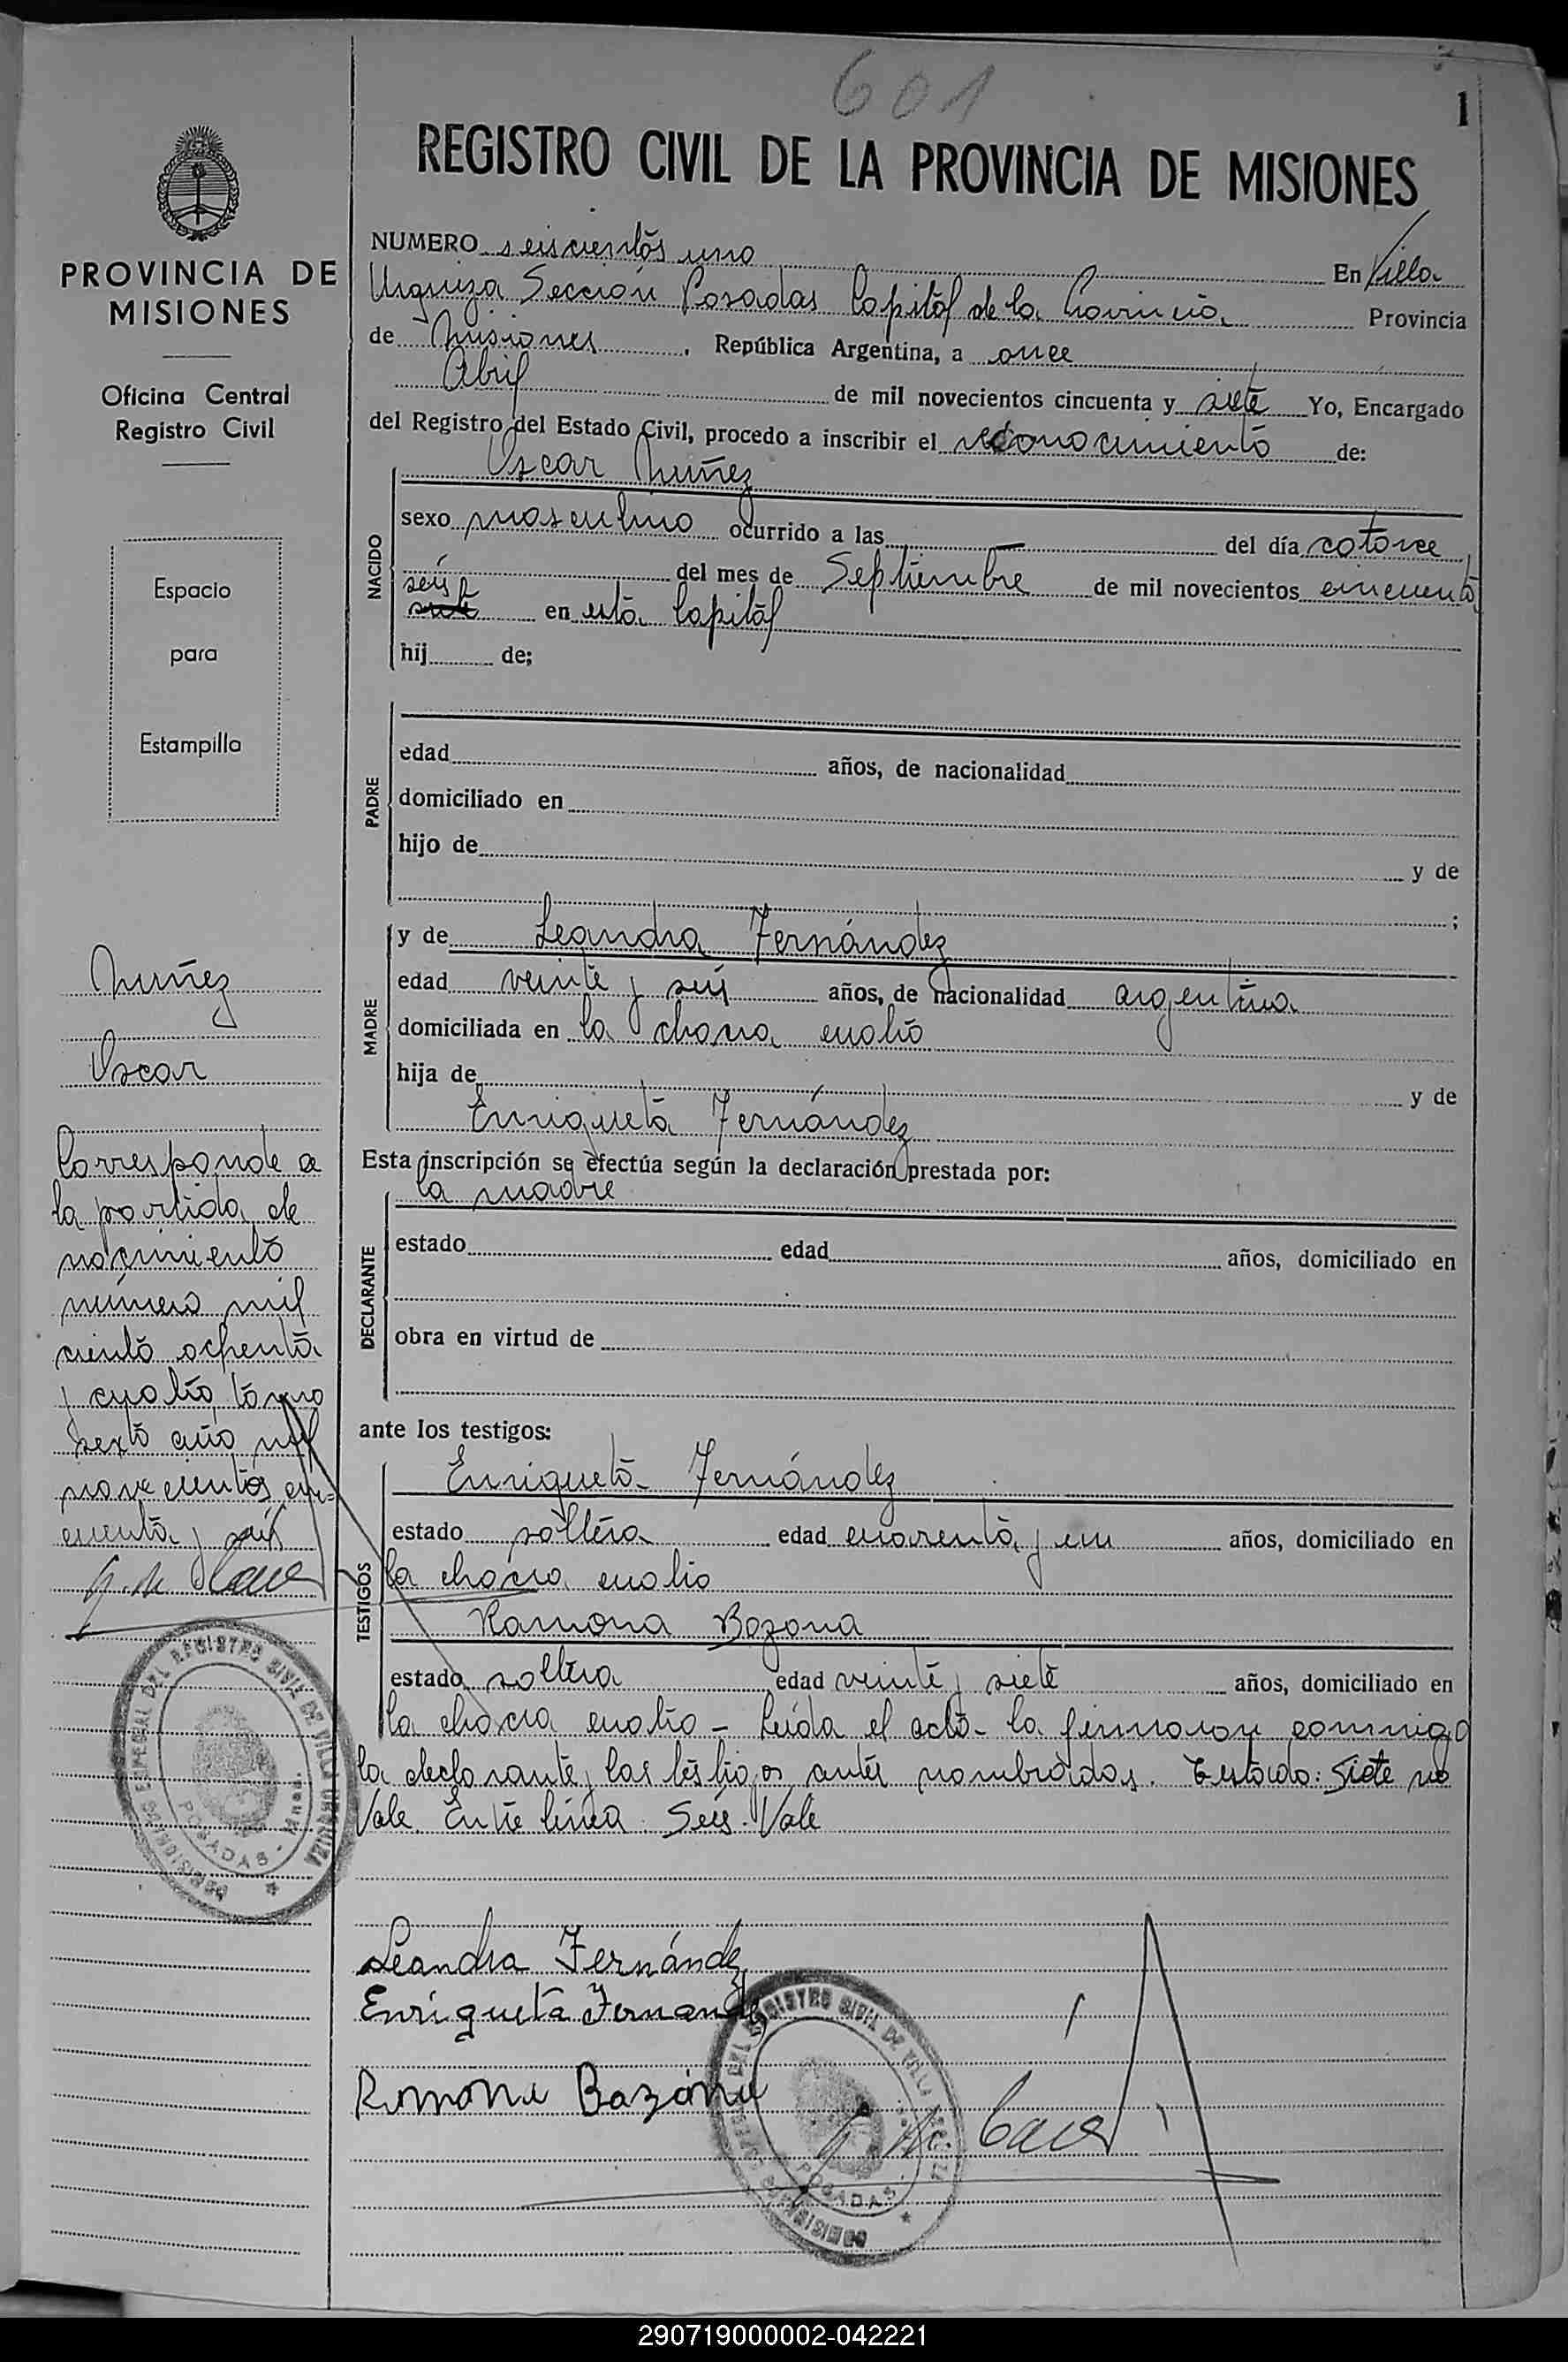 601
1
REGISTRO CIVIL DE LA PROVINCIA DE MISIONES
NUMERO seiscientos uno En Villa
Urquiza Sección Posadas Capital de la Provincia Provincia
de Misiones, República Argentina, a once
Abril de mil novecientos cincuenta y siete Yo, Encargado
del Registro del Estado Civil, procedo a inscribir el reconocimiento de:
NACIDO
Oscar Nuñez
sexo masculino ocurrido a las — del día catorce
del mes de Septiembre de mil novecientos cincuenta
seis
siete en esta Capital
hij de;
PADRE
edad años, de nacionalidad
domiciliado en
hijo de y de
;
MADRE
y de Leandra Fernández
edad veinte y seis años, de nacionalidad argentina
domiciliada en la chacra cuatro
hija de y de
Enriqueta Fernández
Esta inscripción se efectúa según la declaración prestada por:
DECLARANTE
la madre
estado edad años, domiciliado en
obra en virtud de
ante los testigos:
TESTIGOS
Enriqueta Fernández
estado soltera edad cuarenta y un años, domiciliado en
la chacra cuatro
Ramona Bozona
estado soltera edad veinte y siete años, domiciliado en
la chacra cuatro - Leída el acta - la firmaron conmigo
la declarante y los testigos antes nombrados. Testado: Siete no
Vale. Entre línea. Seis. Vale
Leandra Fernández
Enriqueta Fernandez
Ramona Bazána
PROVINCIA DE
MISIONES
Oficina Central
Registro Civil
Espacio
para
Estampilla
Nuñez
Oscar
Corresponde a
la partida de
nacimiento
número mil
ciento ochenta
y cuatro, tomo
sexto año mil
novecientos cin-
cuenta y seis
REGISTRO CIVIL DE VILLA URQUIZA
POSADAS - Mnes.
REGISTRO CIVIL DE VILLA
POSADAS
290719000002-042221